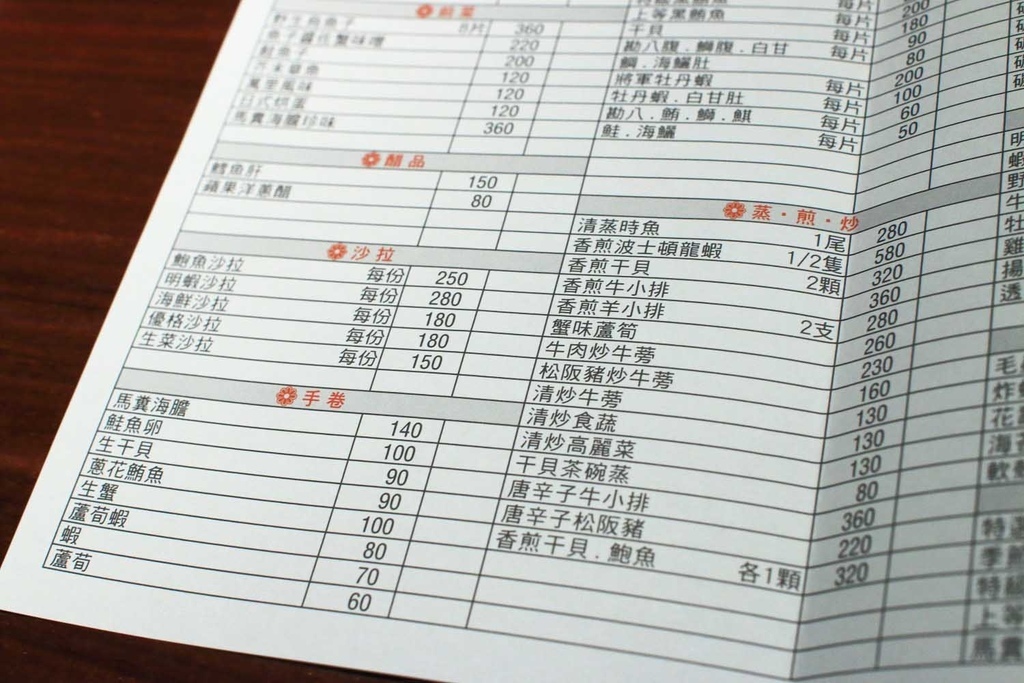 前菜
8片 360
220
200
120
120
日式 120
馬糞海膽珍味 360
醋品
鱈魚肝 150
蘋果洋蔥醋 80
沙拉
鮑魚沙拉 每份 250
明蝦沙拉 每份 280
海鮮沙拉 每份 180
優格沙拉 每份 180
生菜沙拉 每份 150
手卷
馬糞海膽 140
鮭魚卵 100
生干貝 90
蔥花鮪魚 90
生蟹 100
蘆荀蝦 80
蝦 70
蘆荀 60
每片
上等黑鮪魚 每片 200
干貝 180
勘八腹．鰤腹．白甘 每片 90
鯛．海鱺肚 80
將軍牡丹蝦 每片 200
牡丹蝦．白甘肚 每片 100
勘八．鮪．鰤．鯕 60
鮭．海鱺 每片 50
蒸・煎・炒
清蒸時魚 1尾 280
香煎波士頓龍蝦 1/2隻 580
香煎干貝 2顆 320
香煎牛小排 360
香煎羊小排 2支 280
蟹味蘆筍 260
牛肉炒牛蒡 230
松阪豬炒牛蒡 160
清炒牛蒡 130
清炒食蔬 130
清炒高麗菜 130
干貝茶碗蒸 80
唐辛子牛小排 360
唐辛子松阪豬 220
香煎干貝．鮑魚 各1顆 320
明
蝦
野
牛
牡
雞
揚
透
毛
炸
花
海
軟
特選
季節
特級
上等
馬糞